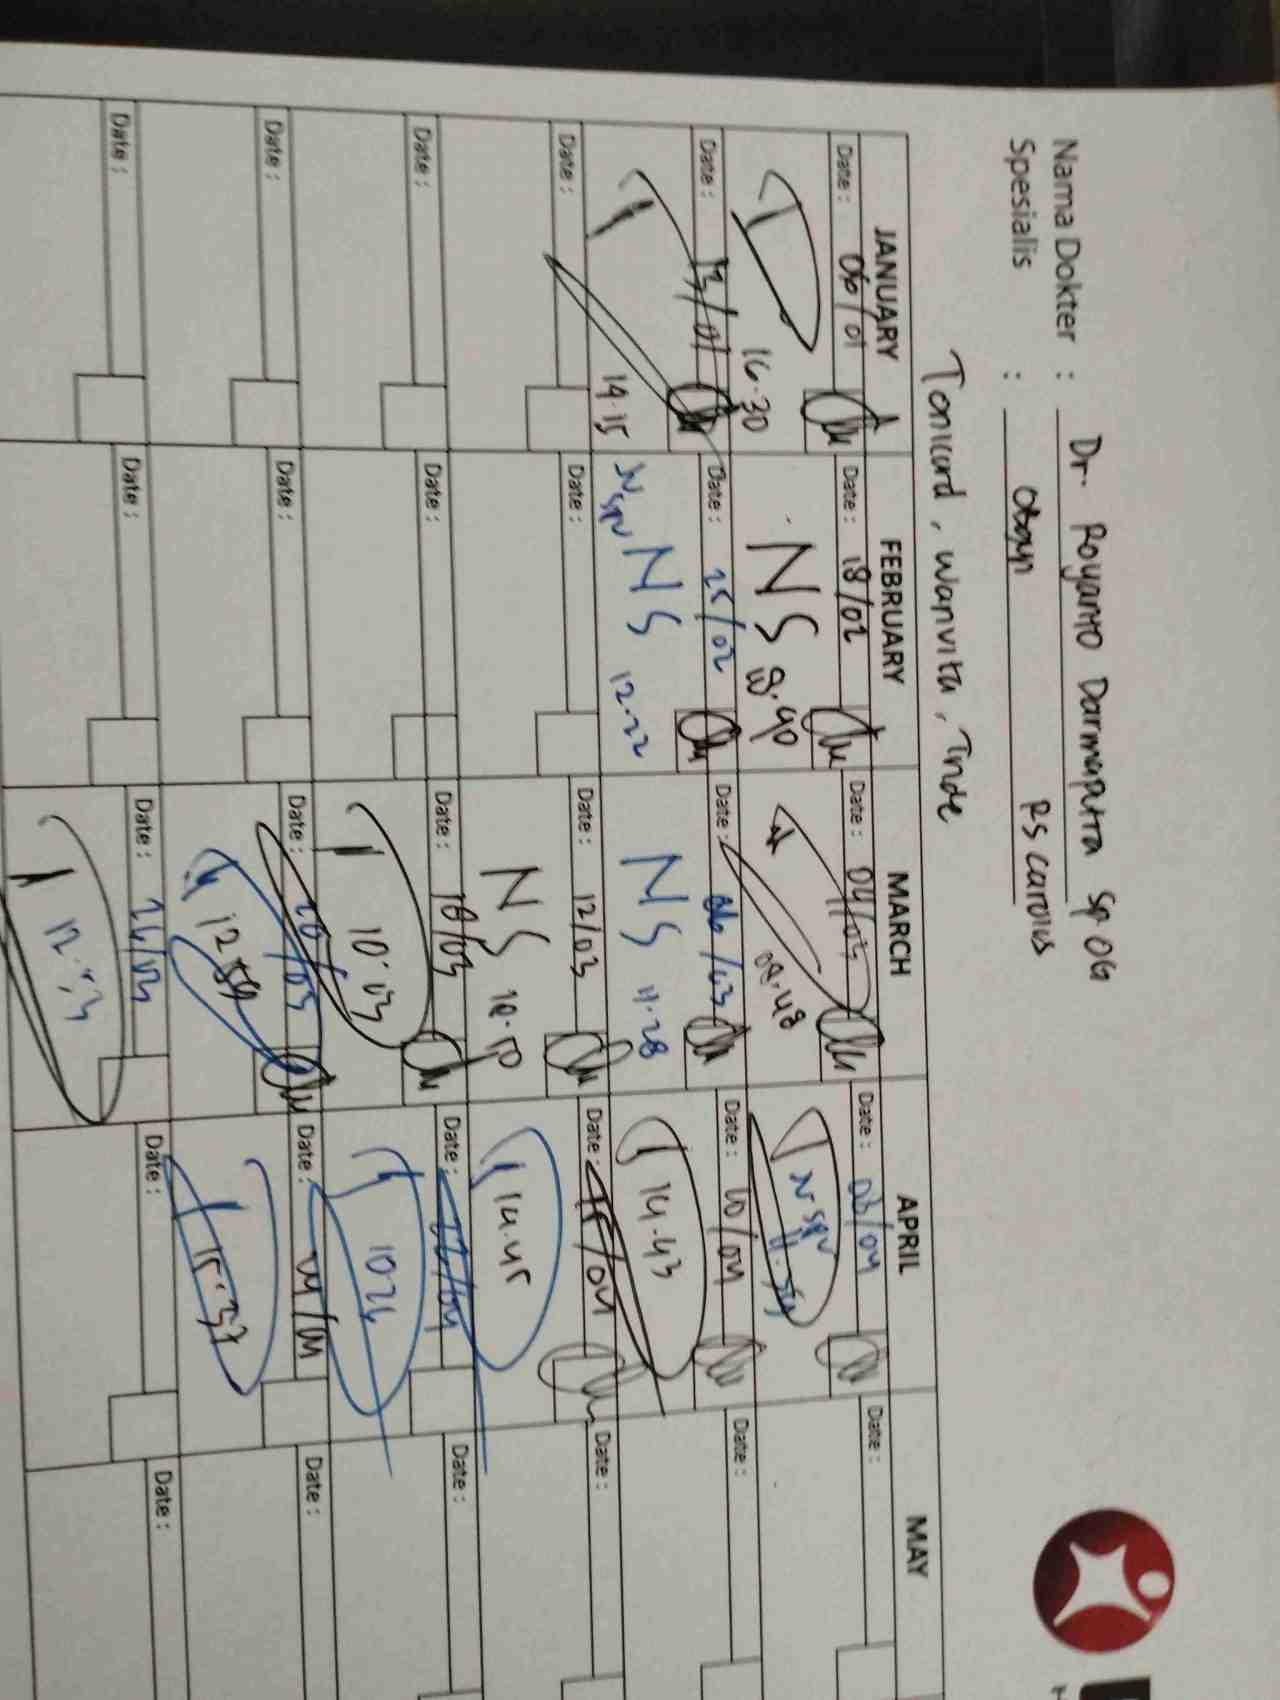 Nama Dokter : Dr. Royanto Darmaputra Sp OG
Spesialis : Obgyn RS Carolus
Tonicard, Wanvita, Tride
JANUARY FEBRUARY MARCH APRIL MAY
Date : 06/01 Date : 18/02 Date : 04/03 Date : 03/04 Date :
16.30 NS 18.40 09.48 N SPV
Date : 13/01 Date : 25/02 Date : 06/03 Date : 10/04 Date :
14.15 N SPV NS 12.22 NS 11.28 14.43
Date : Date : Date : 12/03 Date : 15/04 Date :
NS 10.50 14.45
Date : Date : Date : 18/03 Date : 22/04 Date :
10.03 1024
Date : Date : Date : 20/03 Date : Date :
12 59 15.37
Date : Date : Date : 26/03 Date : Date :